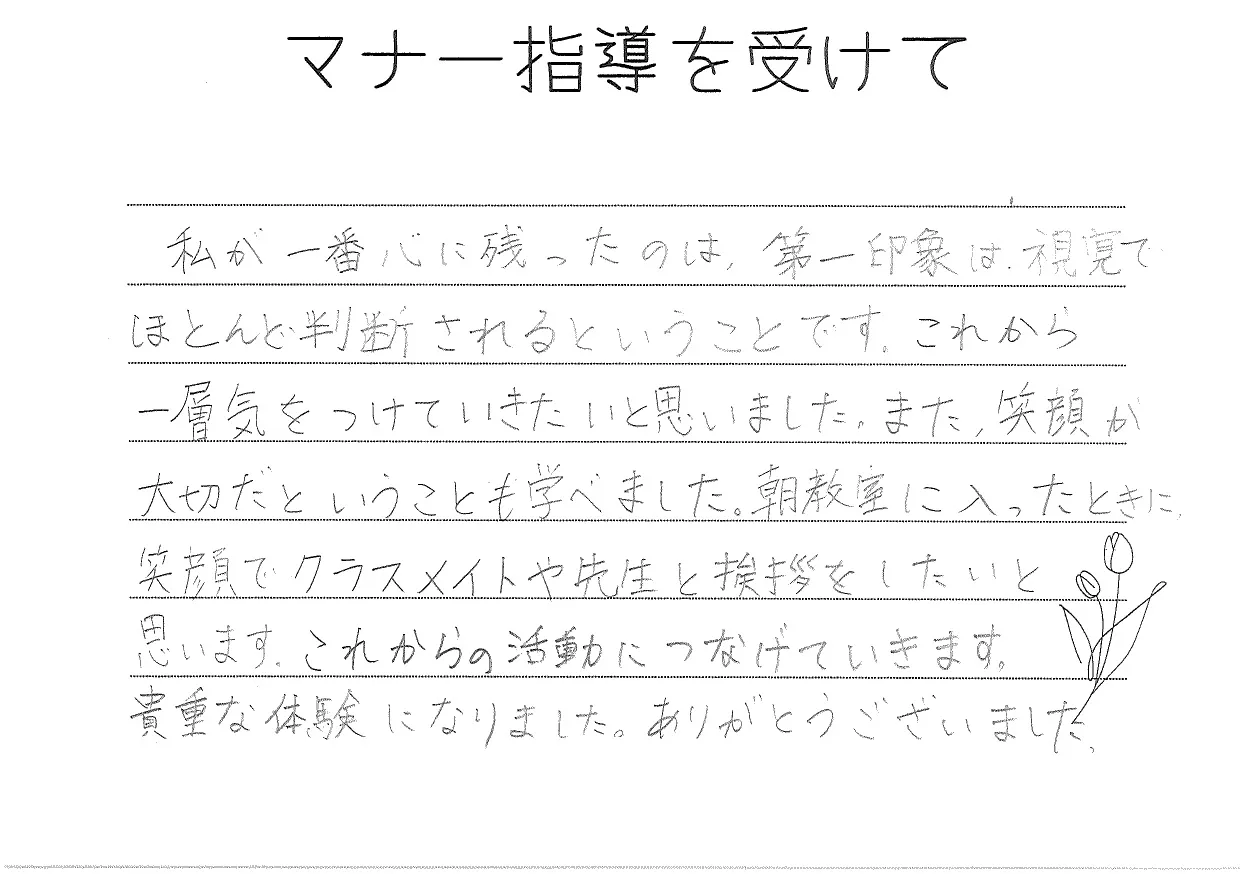 マナー指導を受けて
私が一番心に残ったのは、第一印象は、視覚で
ほとんど判断されるということです。これから
一層気をつけていきたいと思いました。また、笑顔が
大切だということも学べました。朝教室に入ったときに、
笑顔でクラスメイトや先生と挨拶をしたいと
思います。これからの活動につなげていきます。
貴重な体験になりました。ありがとうございました。